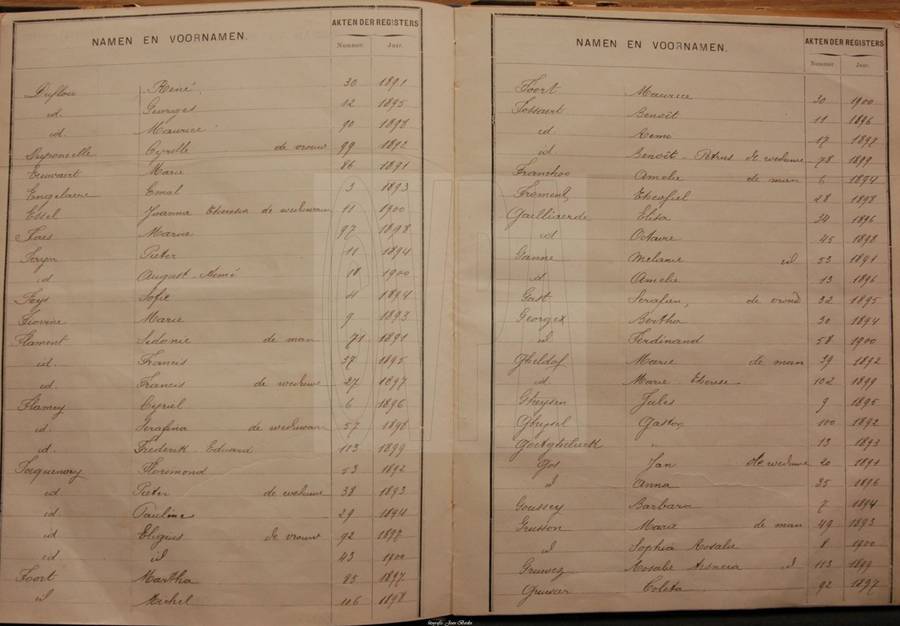 NAMEN EN VOORNAMEN.
AKTEN DER REGISTERS
Nummer. Jaar.
René 30 1891
id Georges 12 1895
id Maurice 90 1898
Duponcelle Cyrille de vrouw 99 1892
Marie 86 1891
Engelaere Emal 3 1893
Essel Joanna Theresia de weduwaar 11 1900
Faes Marie 97 1898
Feryn Pieter 11 1894
id August-Remé 18 1900
Feys Sofie 4 1894
Fiovine Marie 9 1893
Flament Sidonie de man 71 1891
id. Francis 37 1895
id. Francis de weduwe 27 1897
Flamey Cyriel 6 1896
id. Serafina de weduwaar 57 1898
id. Frederik Edward 113 1899
Florimond 53 1892
id Pieter de weduwe 38 1893
id Pauline 29 1894
id Eligius de vrouw 92 1897
id id 43 1900
Foort Martha 85 1897
id Michel 106 1898
NAMEN EN VOORNAMEN.
AKTEN DER REGISTERS
Nummer Jaar.
Foort Maurice 30 1900
Fossaert Benoît 11 1896
id Remo 17 1897
id Benoît-Petrus de weduwe 78 1899
Franchoo Amelie de man 6 1894
Froment Theofiel 28 1898
Gaelliaerde Elisa 34 1896
id Octavie 45 1898
Ganne Melanie id 53 1891
id. Amelie 13 1896
Gast Serafien, de vrouw 32 1895
Georges Bertha 30 1894
id Ferdinand 58 1900
Gheldof Marie de man 39 1892
id Marie Therese 102 1899
Gheysen Jules 9 1895
Ghyssel Gaston 100 1892
Goetgheluck " 13 1893
Gos Jan de weduwe 20 1891
id Anna 35 1896
Goussey Barbara 7 1894
Grusson Marie de man 49 1893
id Sophia Rosalie 8 1900
Gruwez Rosalie id 113 1899
Gruwier Coleta 92 1897